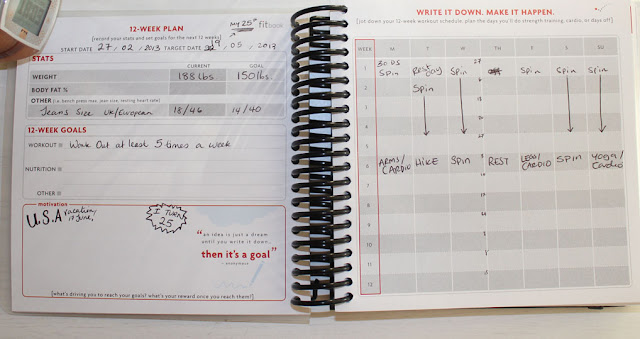 12-WEEK PLAN
[record your stats and set goals for the next 12 weeks]
my 25th
fitbook
START DATE 27, 02, 2013 TARGET DATE 19, 05, 2013
STATS
CURRENT GOAL
WEIGHT 188 lbs 150 lbs.
BODY FAT %
OTHER (i.e. bench press max, jean size, resting heart rate)
Jeans Size UK/European 18/46 14/40
12-WEEK GOALS
WORKOUT Work Out at least 5 times a week
NUTRITION
OTHER
motivation
U.S.A vacation
17 June.
I TURN
25
"an idea is just a dream
until you write it down,
then it's a goal"
— anonymous
[what's driving you to reach your goals? what's your reward once you reach them?]
WRITE IT DOWN. MAKE IT HAPPEN.
[jot down your 12-week workout schedule. plan the days you'll do strength training, cardio, or days off]
WEEK M T W TH F S SU
1 30 DS Spin Rest day Spin Spin Spin Spin
2 Spin
3
4
5
6 ARMS/CARDIO HIKE Spin REST LEGS/CARDIO SPIN Yoga/Cardio
7
8
9
10
11
12